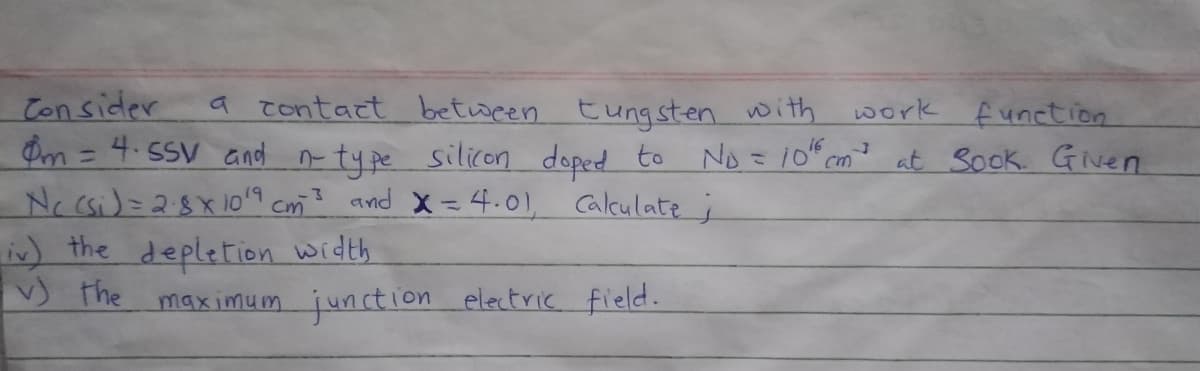 Consider a contact between tungsten with work function
Φm = 4.55V and n-type silicon doped to ND = 10¹⁶ cm⁻³ at 300K. Given
Nc (Si) = 2.8 x 10¹⁹ cm⁻³ and X = 4.01, Calculate ;
iv) the depletion width
v) the maximum junction electric field.